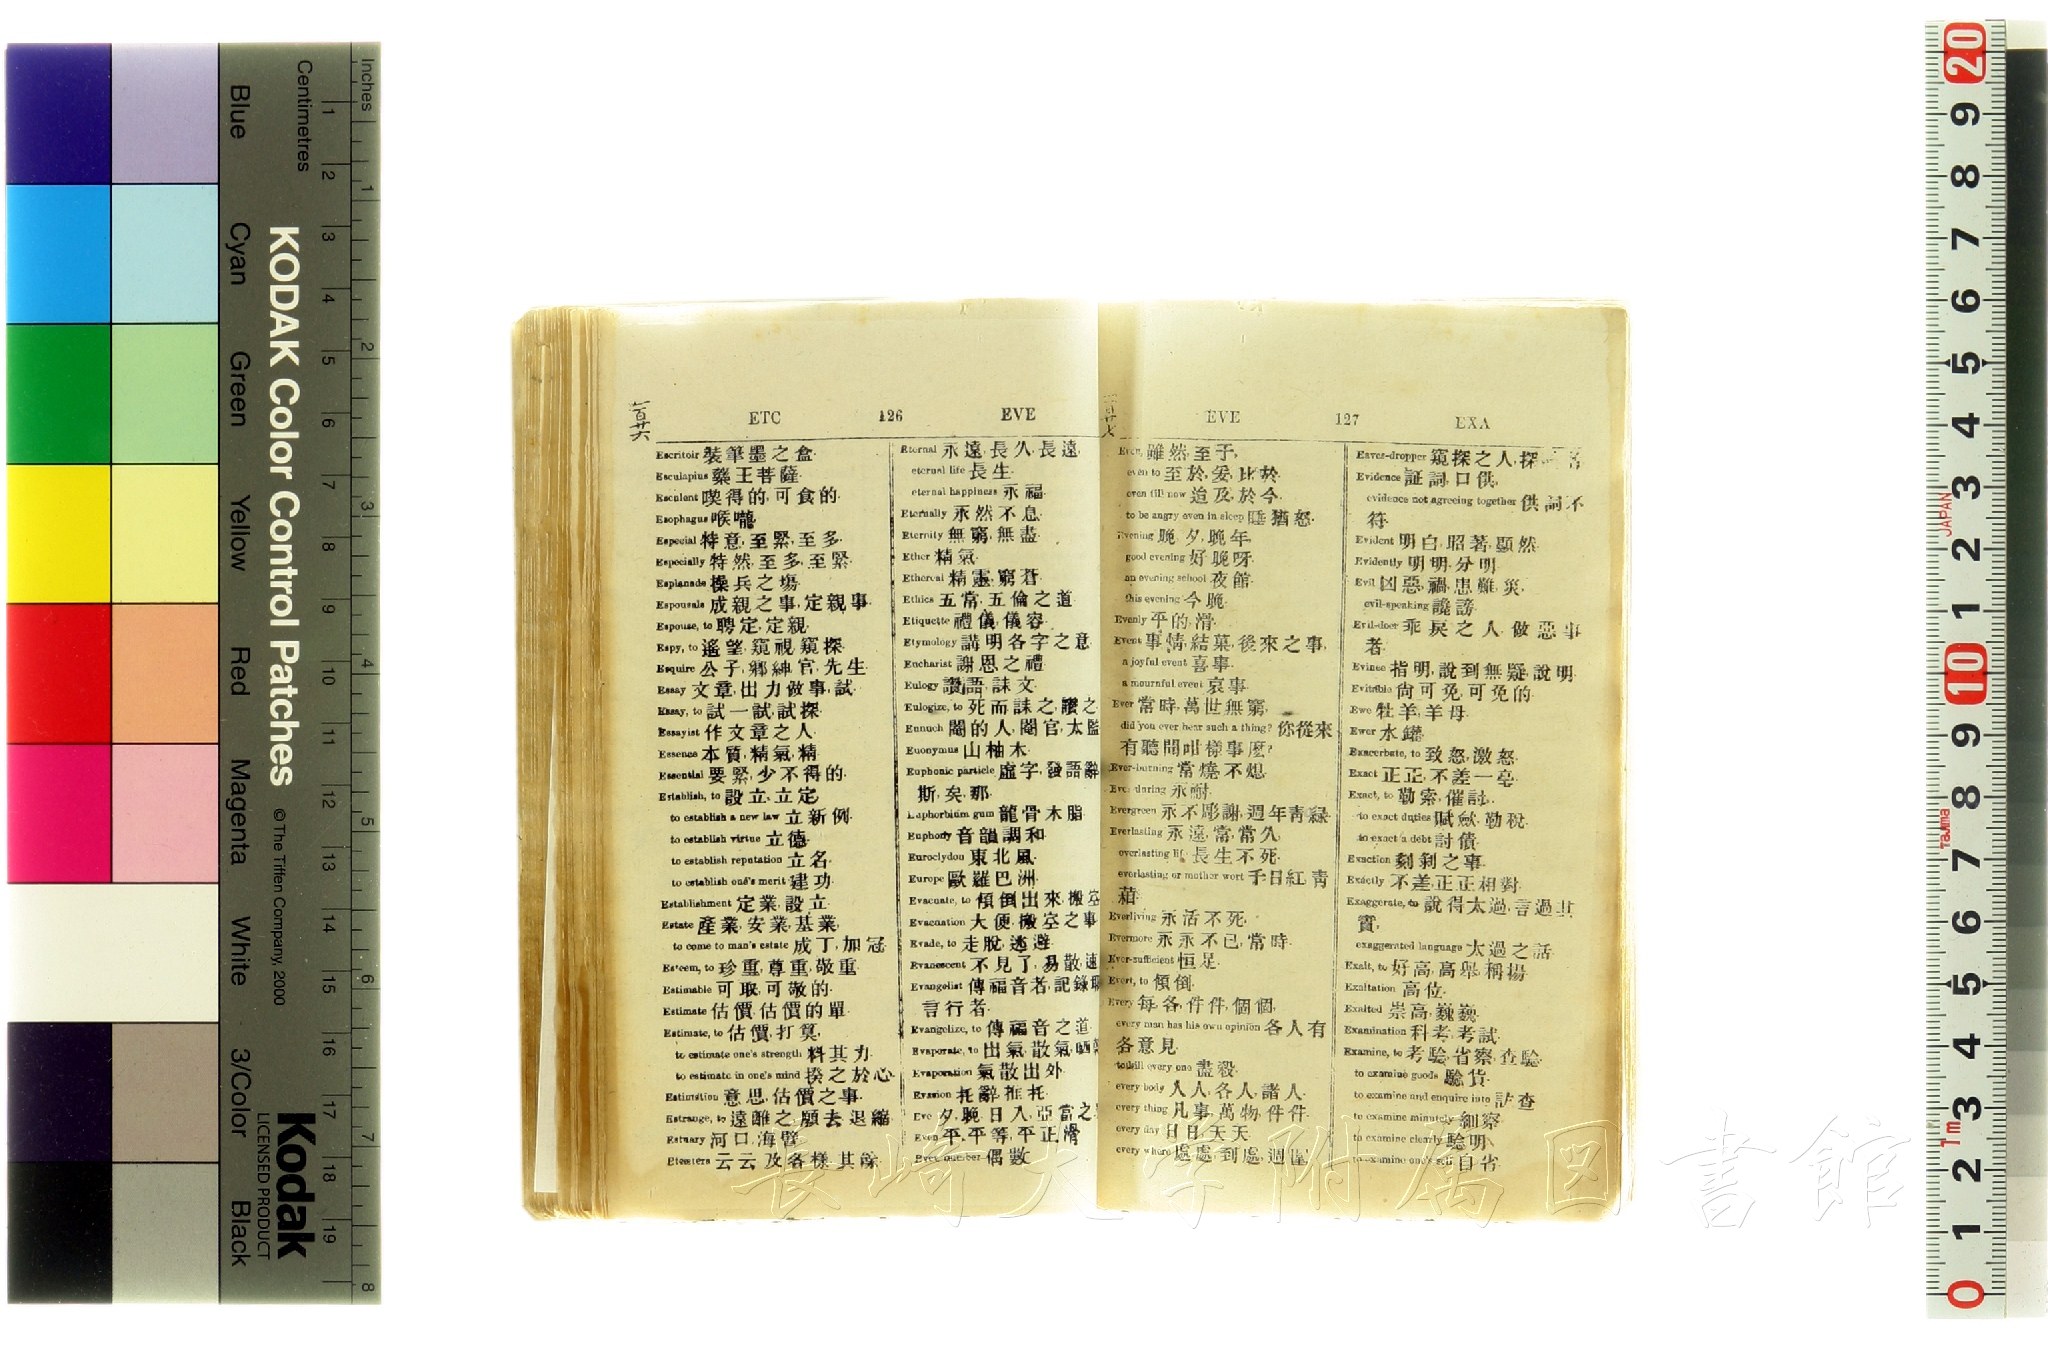 Inches
Centimetres
KODAK Color Control Patches
© The Tiffen Company, 2000
Kodak
LICENSED PRODUCT
Blue
Cyan
Green
Yellow
Red
Magenta
White
3/Color
Black
一百廿六
ETC 126 EVE
Escritoir 裝筆墨之盒.
Esculapius 藥王菩薩.
Esculent 喫得的, 可食的.
Esophagus 喉嚨.
Especial 特意, 至緊, 至多.
Especially 特然, 至多, 至緊.
Esplanade 操兵之場.
Espousals 成親之事, 定親事.
Espouse, to 聘定, 定親.
Espy, to 遙望, 窺視, 窺探.
Esquire 公子, 鄉紳, 官, 先生.
Essay 文章, 出力做事, 試.
Essay, to 試一試, 試探.
Essayist 作文章之人.
Essence 本質, 精氣, 精.
Essential 要緊, 少不得的.
Establish, to 設立, 立定.
to establish a new law 立新例.
to establish virtue 立德.
to establish reputation 立名.
to establish one's merit 建功.
Establishment 定業, 設立.
Estate 產業, 安業, 基業.
to come to man's estate 成丁, 加冠.
Esteem, to 珍重, 尊重, 敬重.
Estimable 可取, 可敬的.
Estimate 估價, 估價的單.
Estimate, to 估價, 打算.
to estimate one's strength 料其力.
to estimate in one's mind 揆之於心.
Estimation 意思, 估價之事.
Estrange, to 遠離之, 願去, 退縮.
Estuary 河口, 海臂.
Etcetera 云云, 及各樣, 其餘.
Eternal 永遠, 長久, 長遠.
eternal life 長生.
eternal happiness 永福.
Eternally 永然不息.
Eternity 無窮, 無盡.
Ether 精氣.
Ethereal 精靈, 窮蒼.
Ethics 五常, 五倫之道.
Etiquette 禮儀, 儀容.
Etymology 講明各字之意.
Eucharist 謝恩之禮.
Eulogy 讚語, 誄文.
Eulogize, to 死而誄之, 讚之
Eunuch 閹的人, 閹官, 太監
Euonymus 山柚木.
Euphonic particle 虛字, 發語辭
斯, 矣, 那.
Euphorbium gum 龍骨木脂.
Euphony 音韻調和.
Euroclydon 東北風.
Europe 歐羅巴洲.
Evacuate, to 傾倒出來, 搬空
Evacuation 大便, 搬空之事
Evade, to 走脫, 逃避.
Evanescent 不見了, 易散, 速
Evangelist 傳福音者, 記錄
言行者.
Evangelize, to 傳福音之道.
Evaporate, to 出氣, 散氣, 晒
Evaporation 氣散出外.
Evasion 托辭, 推托.
Eve 夕, 晚, 日入, 亞當之
Even 平, 平等, 平正, 滑.
Even number 偶數.
EVE 127 EXA
Even, 雖然, 至于,
even to 至於, 爰, 比於.
even till now 迨及, 於今.
to be angry even in sleep 睡猶怒.
Evening 晚, 夕, 晚年.
good evening 好晚呀.
an evening school 夜館.
this evening 今晚.
Evenly 平的, 滑.
Event 事情, 結菓, 後來之事,
a joyful event 喜事.
a mournful event 哀事.
Ever 常時, 萬世無窮.
did you ever hear such a thing? 你從來
有聽聞咁樣事麼?
Ever-burning 常燒不熄.
Ever-during 永耐.
Evergreen 永不彫謝, 週年靑綠.
Everlasting 永遠, 常, 常久.
everlasting life 長生不死.
everlasting or mother wort 千日紅, 靑
葙.
Everliving 永活不死.
Evermore 永永不已, 常時.
Ever-sufficient 恒足.
Evert, to 傾倒.
Every 每, 各, 件件, 個個.
every man has his own opinion 各人有
各意見.
to kill every one 盡殺.
every body 人人, 各人, 諸人.
every thing 凡事, 萬物, 件件.
every day 日日, 天天.
every where 處處, 到處, 週圍.
Eaves-dropper 窺探之人, 探
Evidence 証詞, 口供.
evidence not agreeing together 供詞不
符.
Evident 明白, 昭著, 顯然.
Evidently 明明, 分明.
Evil 凶惡, 禍, 患難, 災.
evil-speaking 讒謗.
Evil-doer 乖戾之人, 做惡事
者.
Evince 指明, 說到無疑, 說明.
Evitable 尙可免, 可免的.
Ewe 牡羊, 羊母.
Ewer 水罐.
Exacerbate, to 致怒, 激怒.
Exact 正正, 不差一毫.
Exact, to 勒索, 催討.
to exact duties 賦歛, 勒稅.
to exact a debt 討債.
Exaction 剝剝之事.
Exactly 不差, 正正相對.
Exaggerate, to 說得太過, 言過其
實.
exaggerated language 太過之話.
Exalt, to 好高, 高舉, 稱揚.
Exaltation 高位.
Exalted 崇高, 巍巍.
Examination 科考, 考試.
Examine, to 考騐, 省察, 查騐.
to examine goods 騐貨.
to examine and enquire into 訪查
to examine minutely 細察
to examine clearly 騐明.
to examine one's self 自省.
長崎大学附属図書館
JAPAN
Tajima
1m